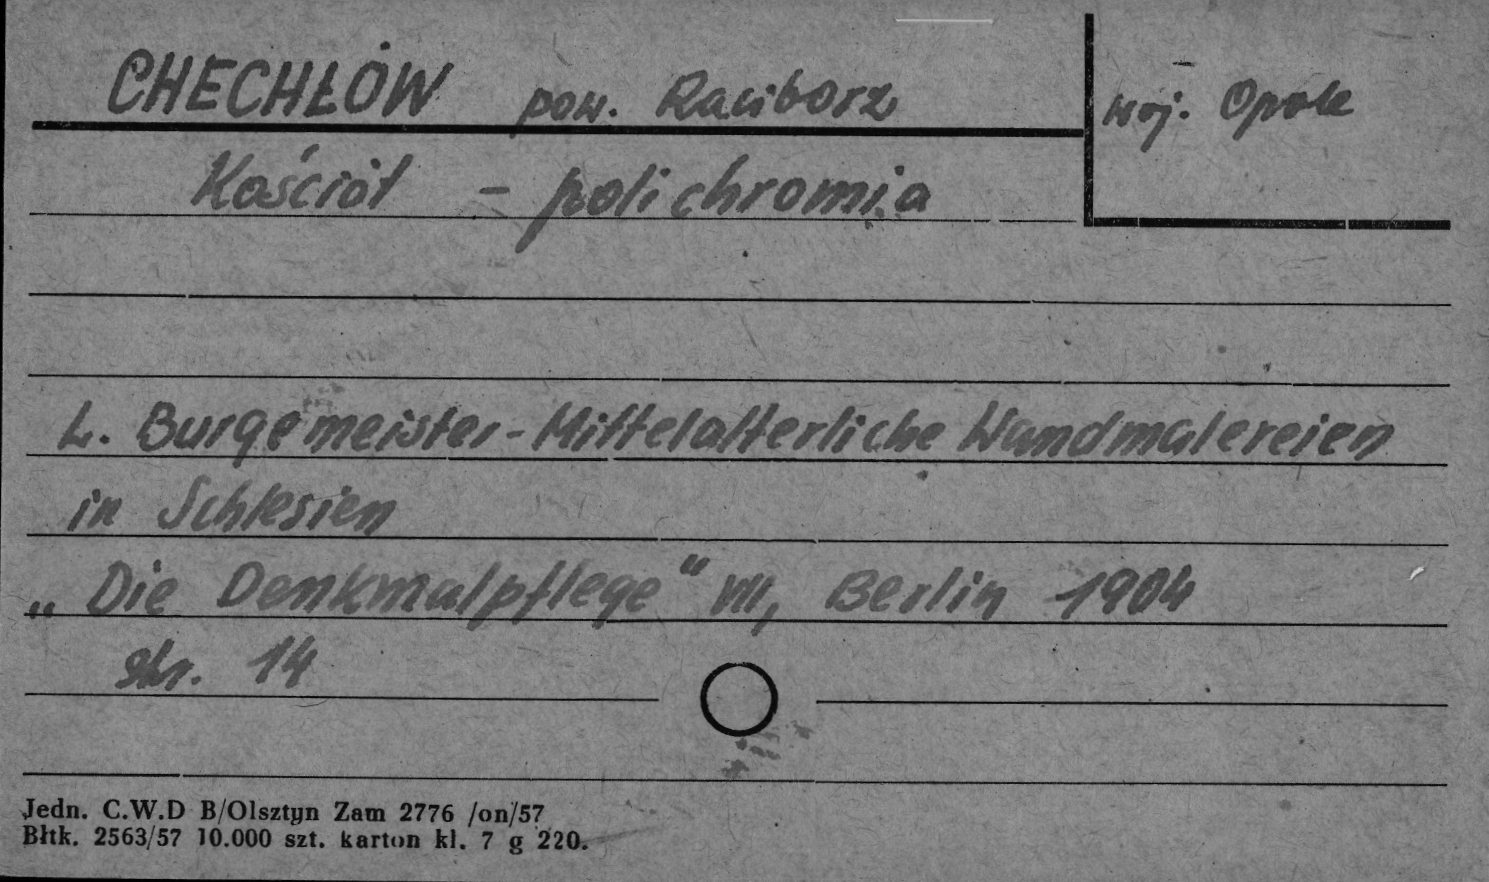 CHECHŁÓW pow. Racibórz woj. Opole
Kościół - polichromia
L. Burgemeister - Mittelalterliche Wandmalereien
in Schlesien
„Die Denkmalpflege" VII, Berlin 1904
str. 14
Jedn. C.W.D B/Olsztyn Zam 2776 /on/57
Błtk. 2563/57 10.000 szt. karton kl. 7 g 220.